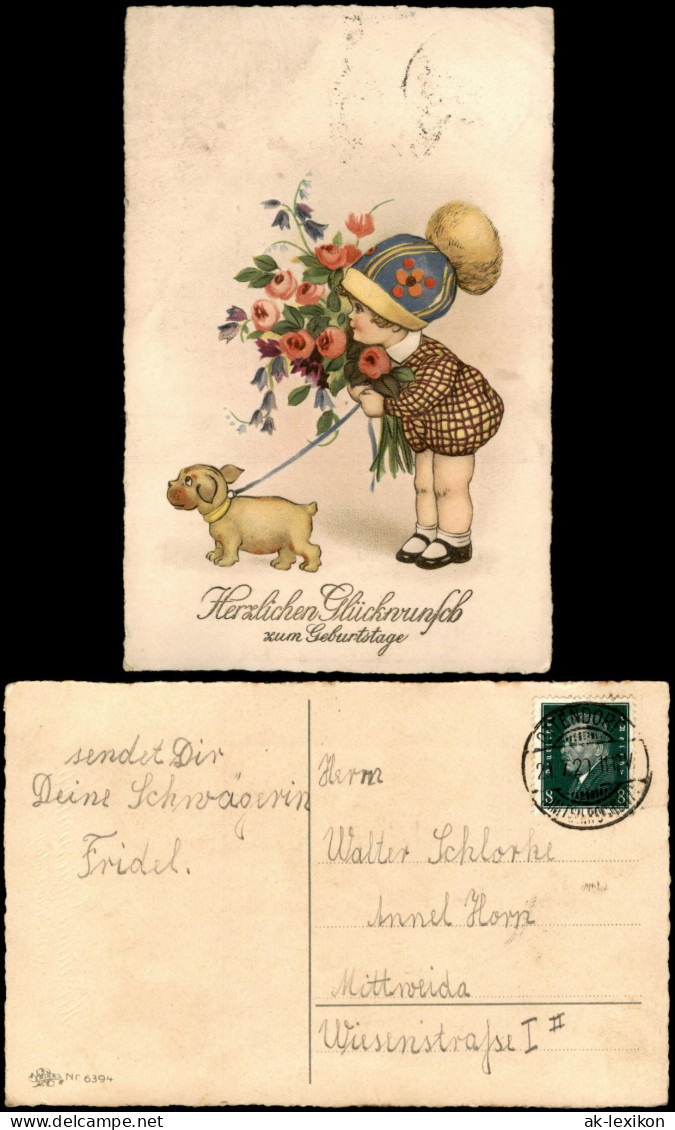 Herzlichen Glückwunsch
zum Geburtstage
sendet Dir
Deine Schwägerin
Fridel.
Nr 6394
Herrn
Walter Schlorke
Annel Horn
Mittweida
Wiesenstraße I II
8 8
ak-lexikon